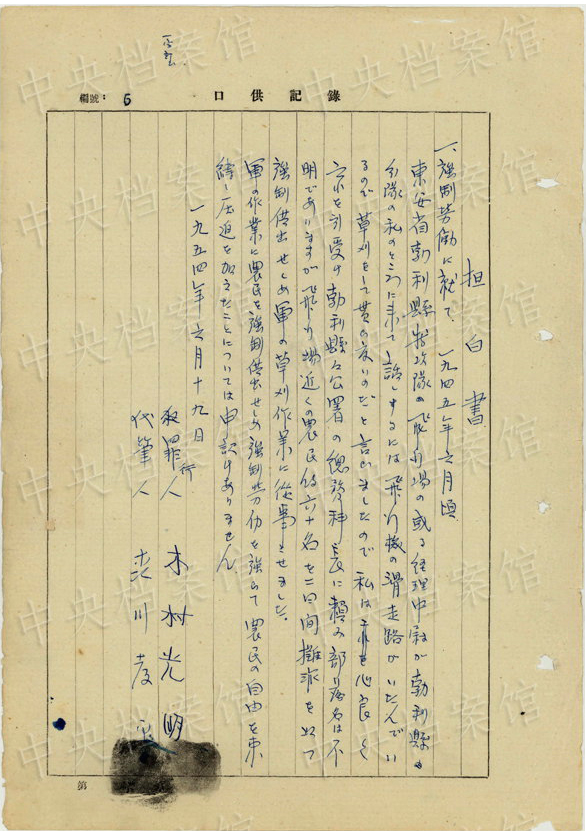 編號：5
口供記錄
坦白書
一、強制労働に就て、一九四五年六月頃
東安省勃利縣特攻隊の飛行場の或る経理中尉が勃利縣
分隊の私のところに来て話しするには飛行機の滑走路がいたんでい
るので草刈をして貰の度いのだと言いましたので私は之を心良く
之れを引受け勃利縣公署の總務科長に頼み部落名は不
明でありますが飛行場近くの農民約六十名を二日間
強制借出せしめ軍の草刈作業に從事させました。
軍の作業に農民を強制借出せしめ強制労働を強らて農民の自由を束
縛し圧迫を加えたことについては申訳けありません
一九五四年六月十九日
犯罪行人 木村光明
代筆人 川
第
中央档案馆